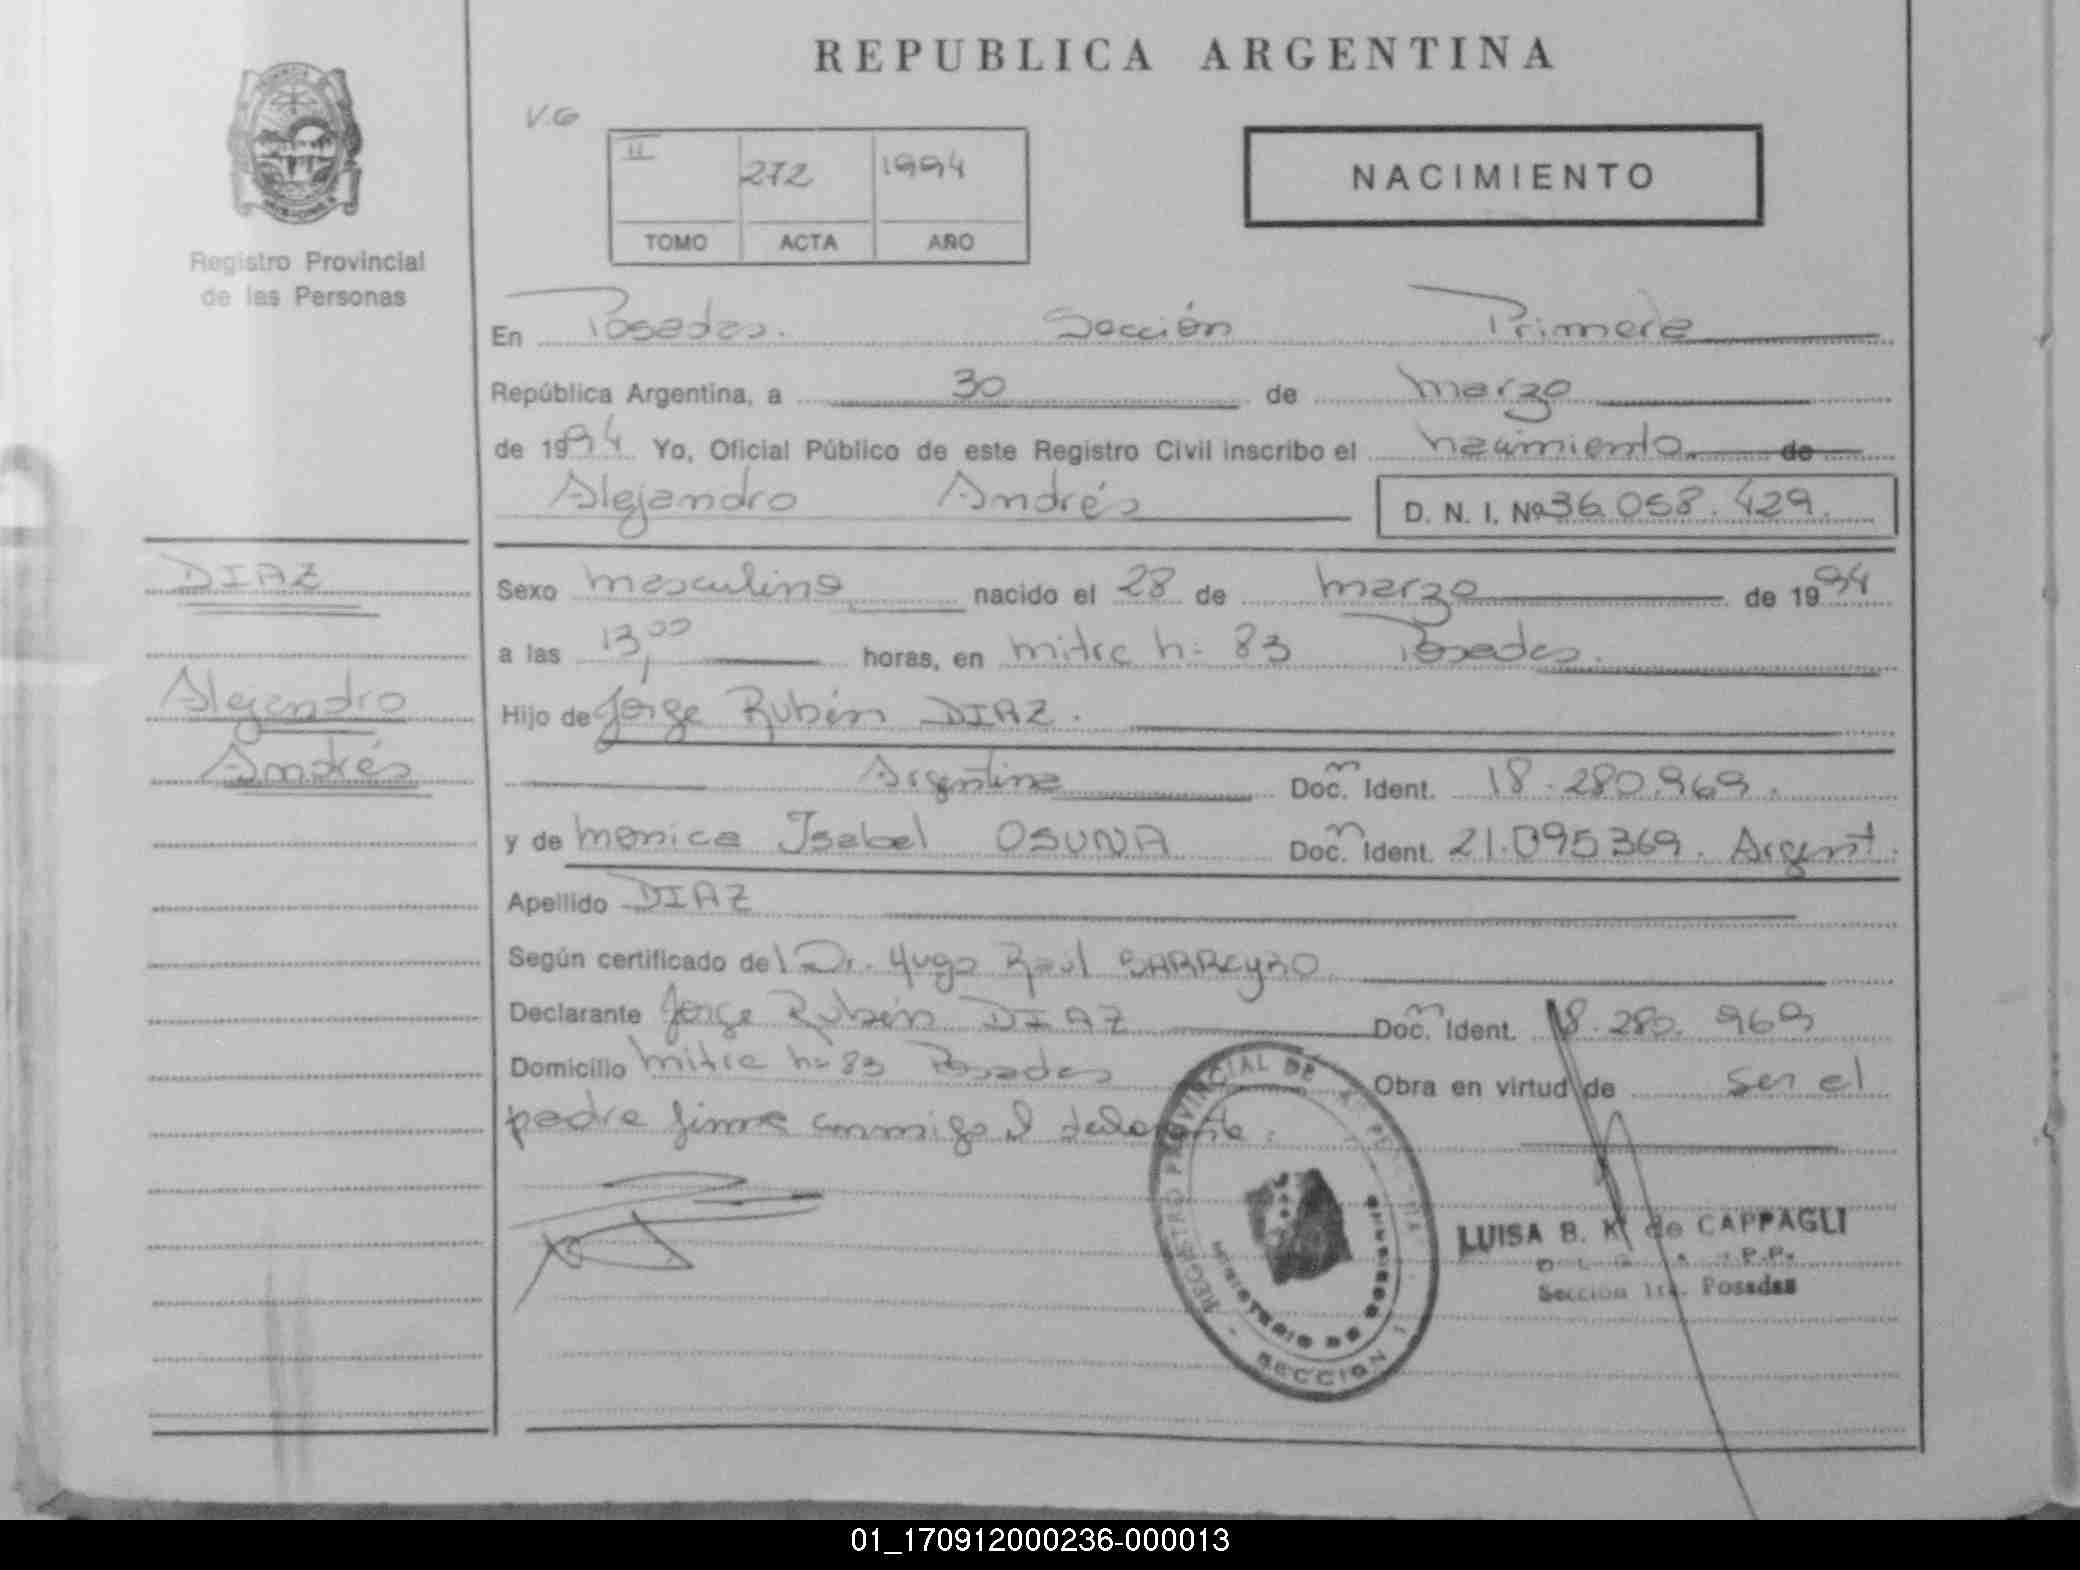 REPUBLICA ARGENTINA
V.G
II 272 1994
TOMO ACTA AÑO
NACIMIENTO
Registro Provincial
de las Personas
En Posadas. Sección Primera
República Argentina, a 30 de marzo
de 1994. Yo, Oficial Público de este Registro Civil inscribo el nacimiento de
Alejandro Andrés D. N. I. Nº 36.058.429.
DIAZ
Alejandro
Andrés
Sexo masculino nacido el 28 de marzo de 1994
a las 13,00 horas, en mitre n: 83 Posadas.
Hijo de Jorge Rubén DIAZ.
Argentina Doc. Ident. 18.280.969.
y de monica Isabel OSUNA Doc. Ident. 21.095.369. Argent.
Apellido DIAZ
Según certificado del Dr. Hugo Raúl BARREYRO
Declarante Jorge Rubén DIAZ Doc. Ident. 18.280.969
Domicilio mitre n: 83 Posadas Obra en virtud de ser el
padre firma conmigo el
REGISTRO PROVINCIAL DE
MINISTERIO DE GOBIERNO
SECCION 1
LUISA B. K de CAPPAGLI
Sección 1ra. Posadas
01_170912000236-000013